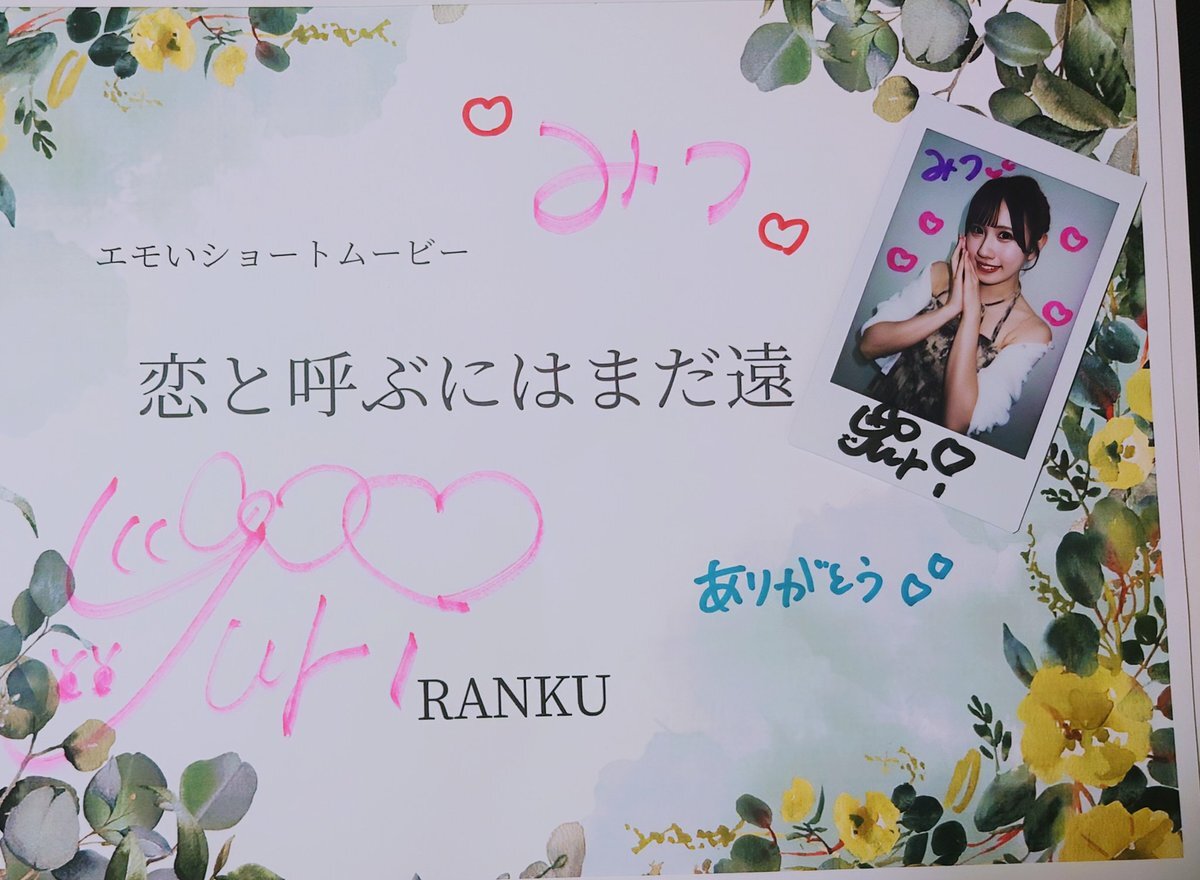 みつ
みつ
エモいショートムービー
恋と呼ぶにはまだ遠
Yuri
ありがとう
Yuri
RANKU